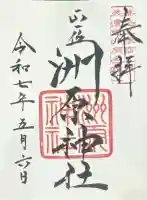 奉拝
正一位
洲原神社
令和七年五月六日